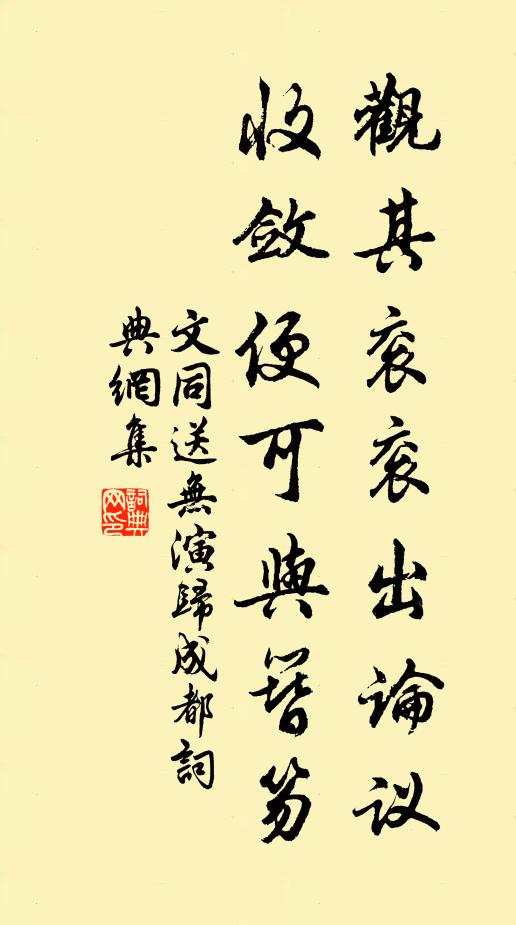 觀其衮衮出論议
收斂便可與簪笏
文同送無演歸成都詞
典網集
詞典
网印